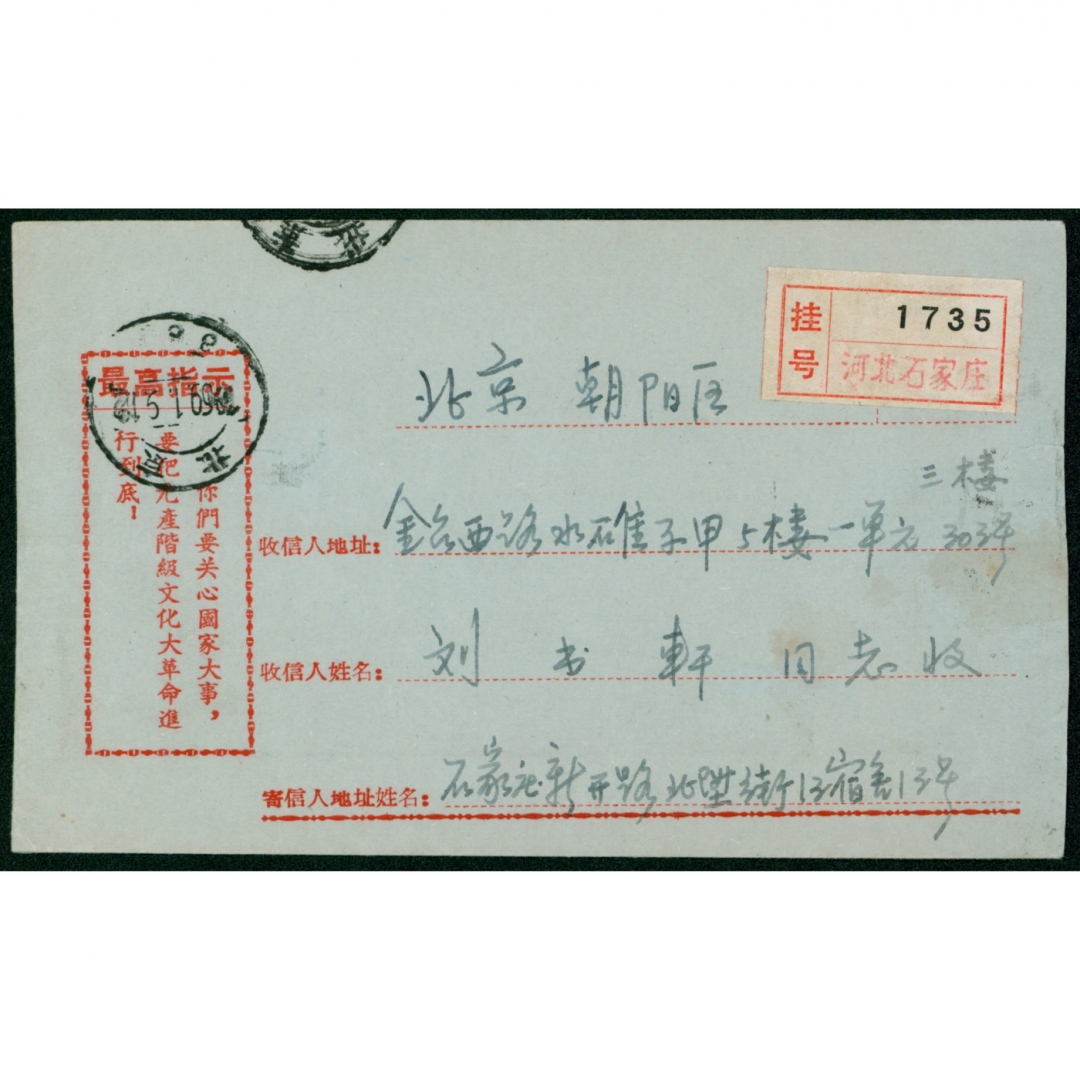 北京
挂号
1735
河北石家庄
北京
1969.1.5.18
最高指示
你們要关心國家大事，
要把无產階級文化大革命進
行到底！
北京 朝阳区
三楼
收信人地址： 金台西路水碓子甲5楼一单元303号
收信人姓名： 刘书軒同志收
寄信人地址姓名： 石家庄新开路北 街13宿舍13号